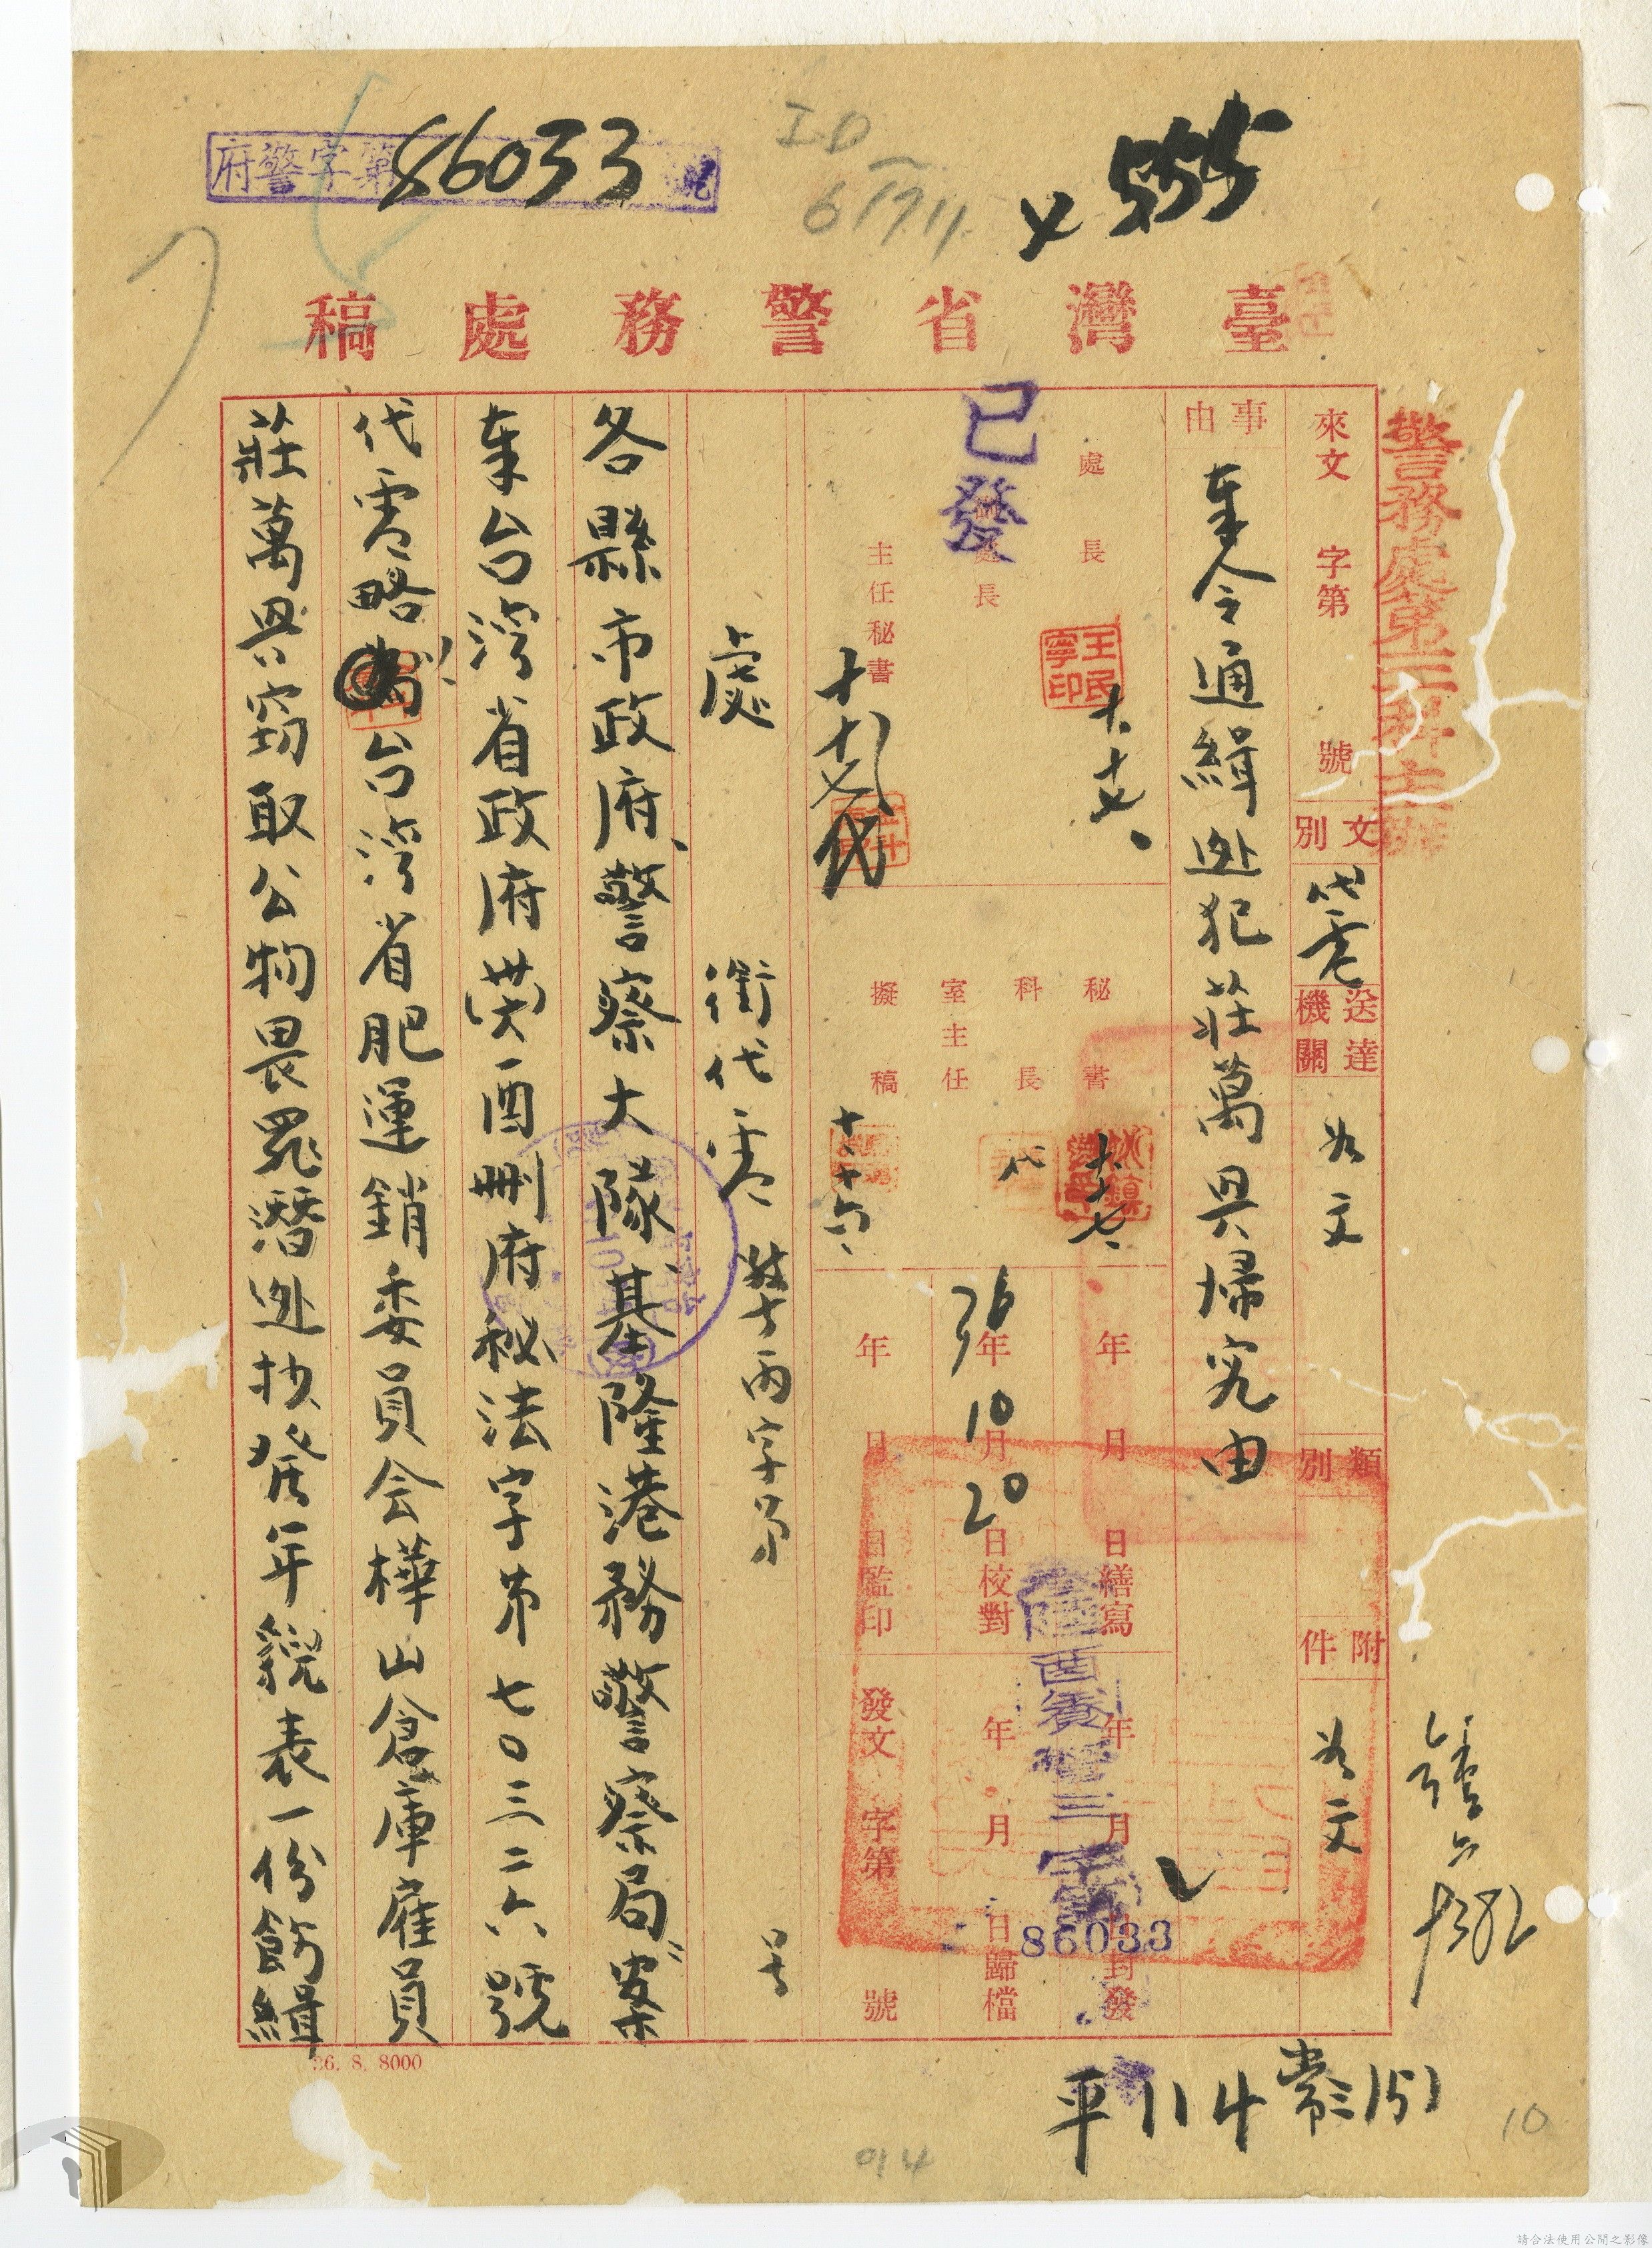 府警字第86033號
555
臺灣省警務處稿
來文 字第 號
文別 代電
送達機關 如文
類別
附件 如文
事由 奉令通緝逃犯莊萬興歸究由
已發
處長
副處長
主任秘書
王民寧印
十、十七、
秘書
科長 代
室主任
擬稿
十、十六、
年 月 日繕寫
36年10月20日校對
年 月 日監印
年 月 日封發
年 月 日歸檔
發文 字第 號
86033
處 銜代電 警丙字第 號
各縣市政府、警察大隊、基隆港務警察局、案
奉台灣省政府酉刪府秘法字第七〇三二六號
代電略:台灣省肥運銷委員会樺山倉庫雇員
莊萬興窃取公物畏罪潛逃抄發年貌表一份飭緝
36. 8. 8000
平114
151
014
10
請合法使用公開之影像